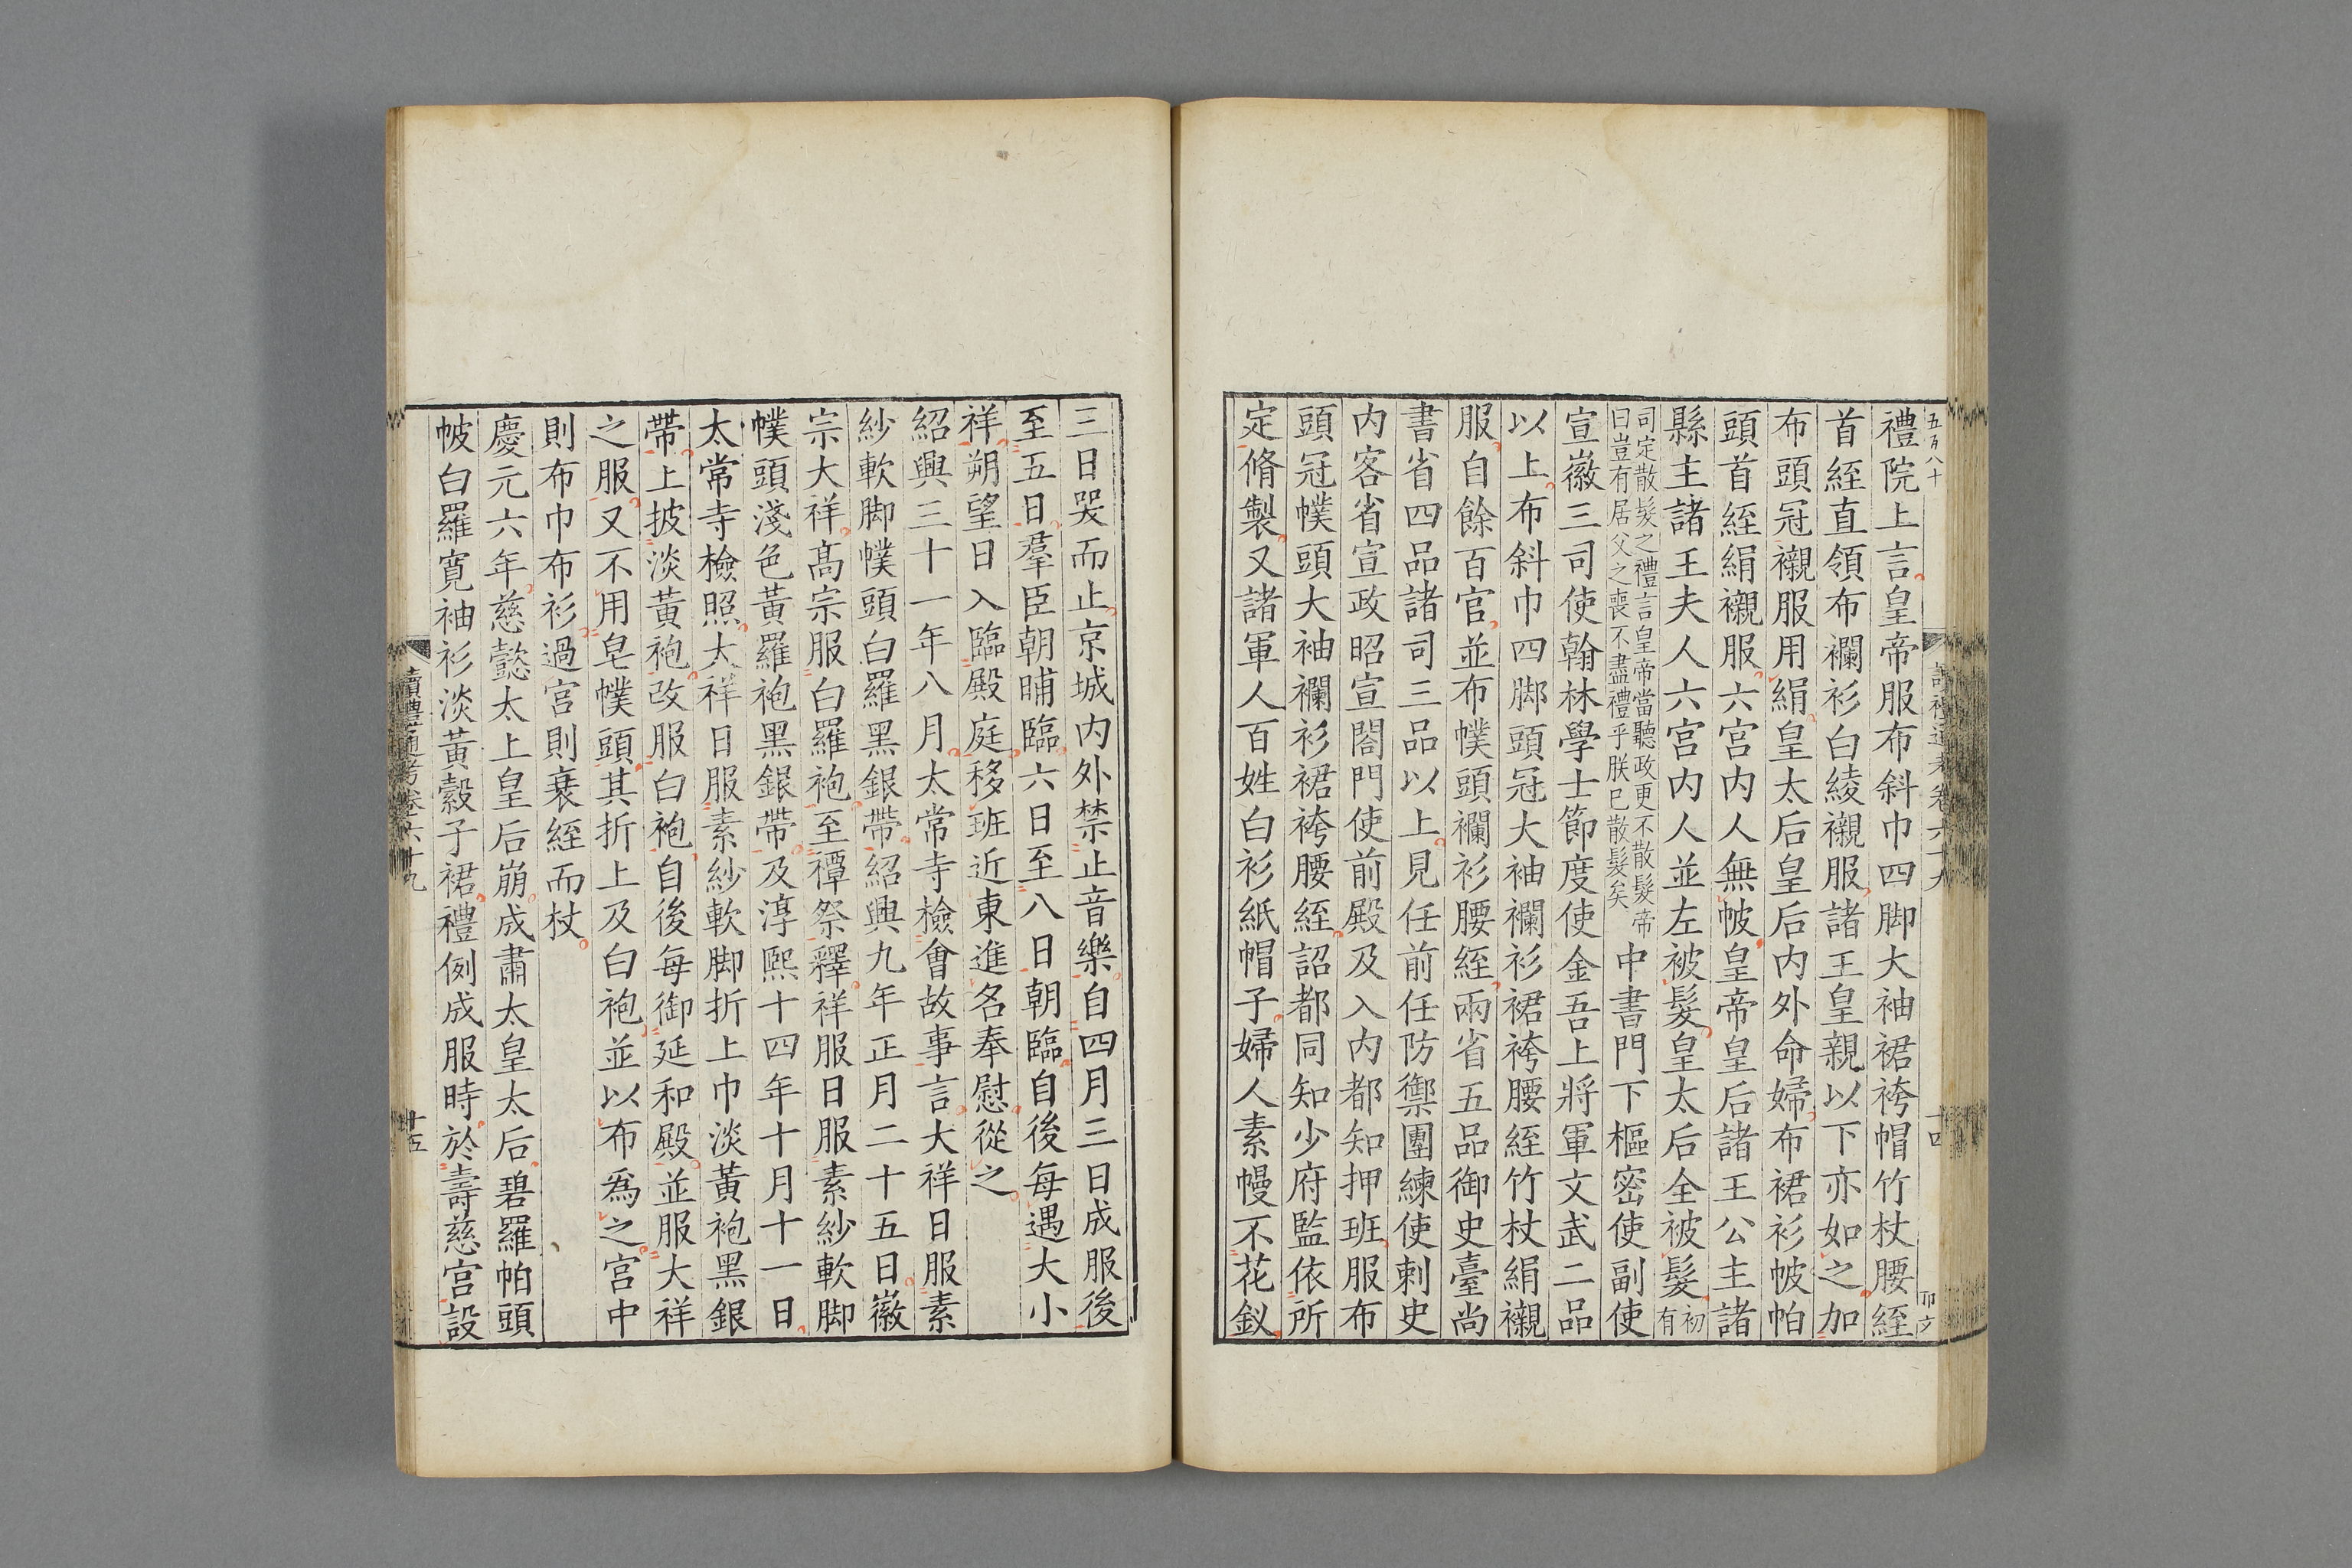 禮院上言皇帝服布斜巾四脚大袖裙袴帽竹杖腰絰
首絰直領布襴衫白綾襯服諸王皇親以下亦如之加
布頭冠襯服用絹皇太后皇后内外命婦布裙衫帔帕
頭首絰絹襯服六宮内人無帔皇帝皇后諸王公主諸
縣主諸王夫人六宮内人並左被髮皇太后全被髮初有
司定散髮之禮言皇帝當聽政更不散髮帝
曰豈有居父之喪不盡禮乎朕已散髮矣
中書門下樞密使副使
宣徽三司使翰林學士節度使金吾上將軍文武二品
以上布斜巾四脚頭冠大袖襴衫裙袴腰絰竹杖絹襯
服自餘百官並布幞頭襴衫腰絰兩省五品御史臺尚
書省四品諸司三品以上見任前任防禦團練使刺史
内客省宣政昭宣閤門使前殿及入内都知押班服布
頭冠幞頭大袖襴衫裙袴腰絰詔都同知少府監依所
定脩製又諸軍人百姓白衫紙帽子婦人素幔不花釵
三日哭而止京城内外禁止音樂自四月三日成服後
至五日羣臣朝晡臨六日至八日朝臨自後每遇大小
祥朔望日入臨殿庭移班近東進名奉慰從之
紹興三十一年八月太常寺檢會故事言大祥日服素
紗軟脚幞頭白羅黑銀帶紹興九年正月二十五日徽
宗大祥髙宗服白羅袍至禫祭釋祥服日服素紗軟脚
幞頭淺色黃羅袍黑銀帶及淳熙十四年十月十一日
太常寺檢照大祥日服素紗軟脚折上巾淡黃袍黑銀
帶上披淡黃袍改服白袍自後每御延和殿並服大祥
之服又不用皂幞頭其折上及白袍並以布爲之宮中
則布巾布衫過宮則衰絰而杖
慶元六年慈懿太上皇后崩成肅太皇太后碧羅帕頭
帔白羅寛袖衫淡黃縠子裙禮例成服時於壽慈宮設
讀禮通考卷六十九
十五